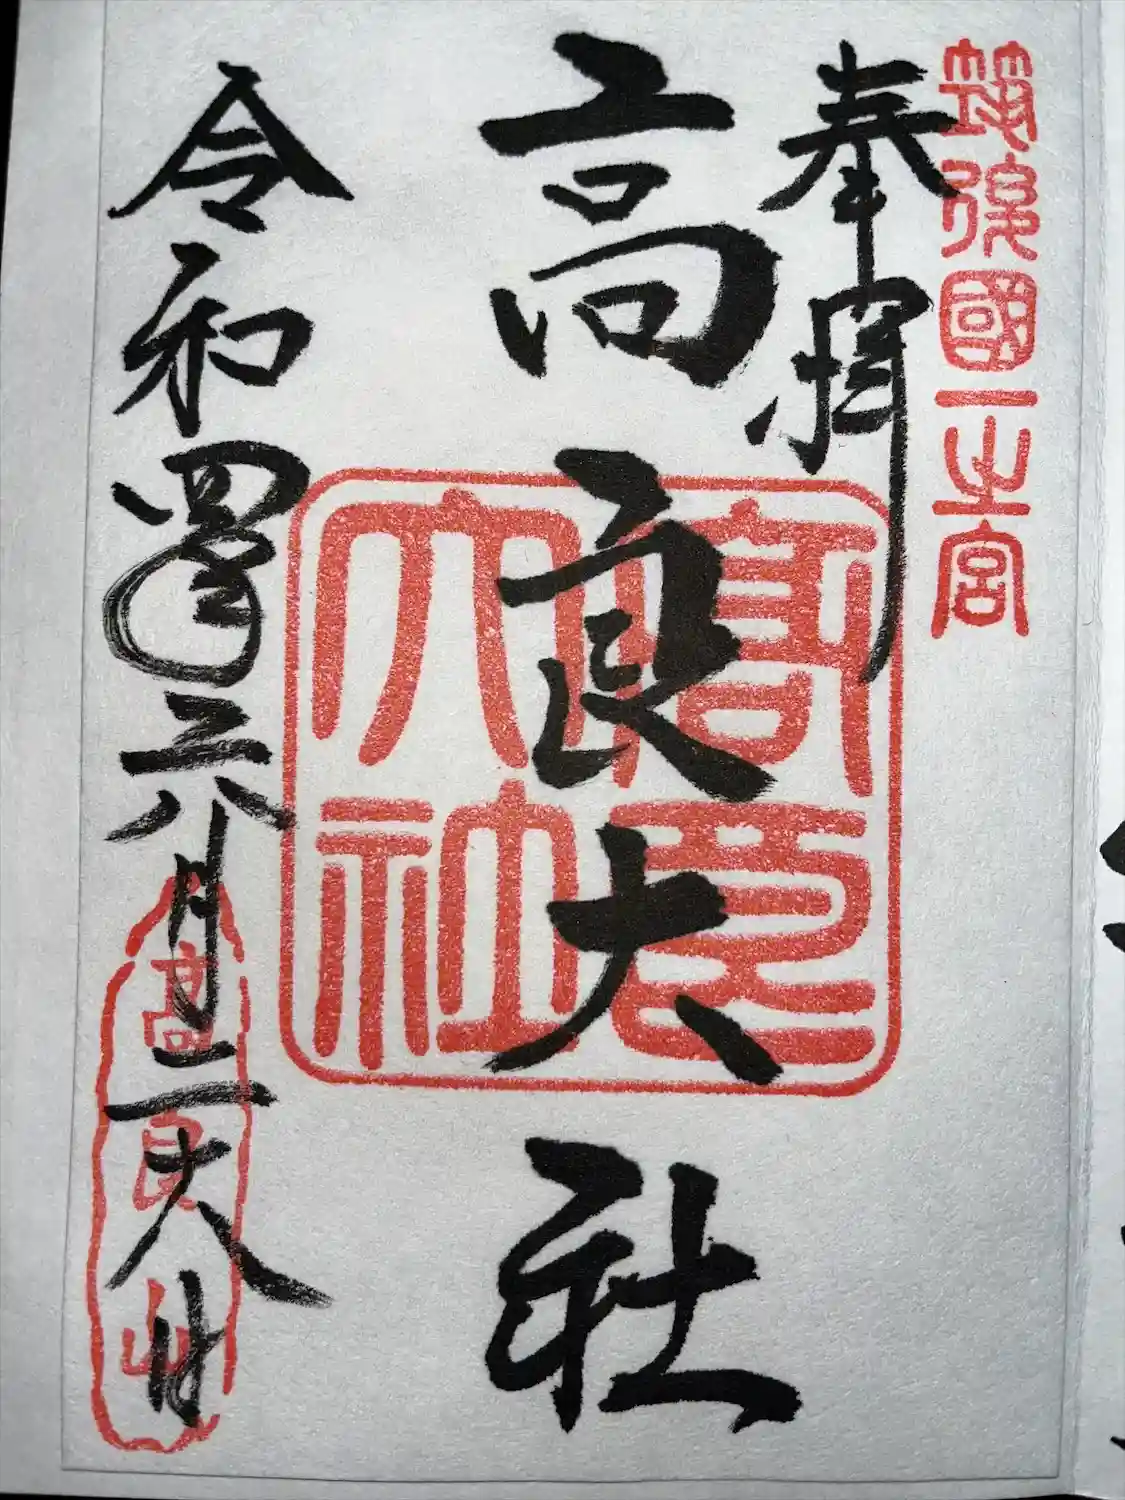 筑後國一之宮
奉拝
高良大社
高良大社
令和四年六月二十八日
高良山